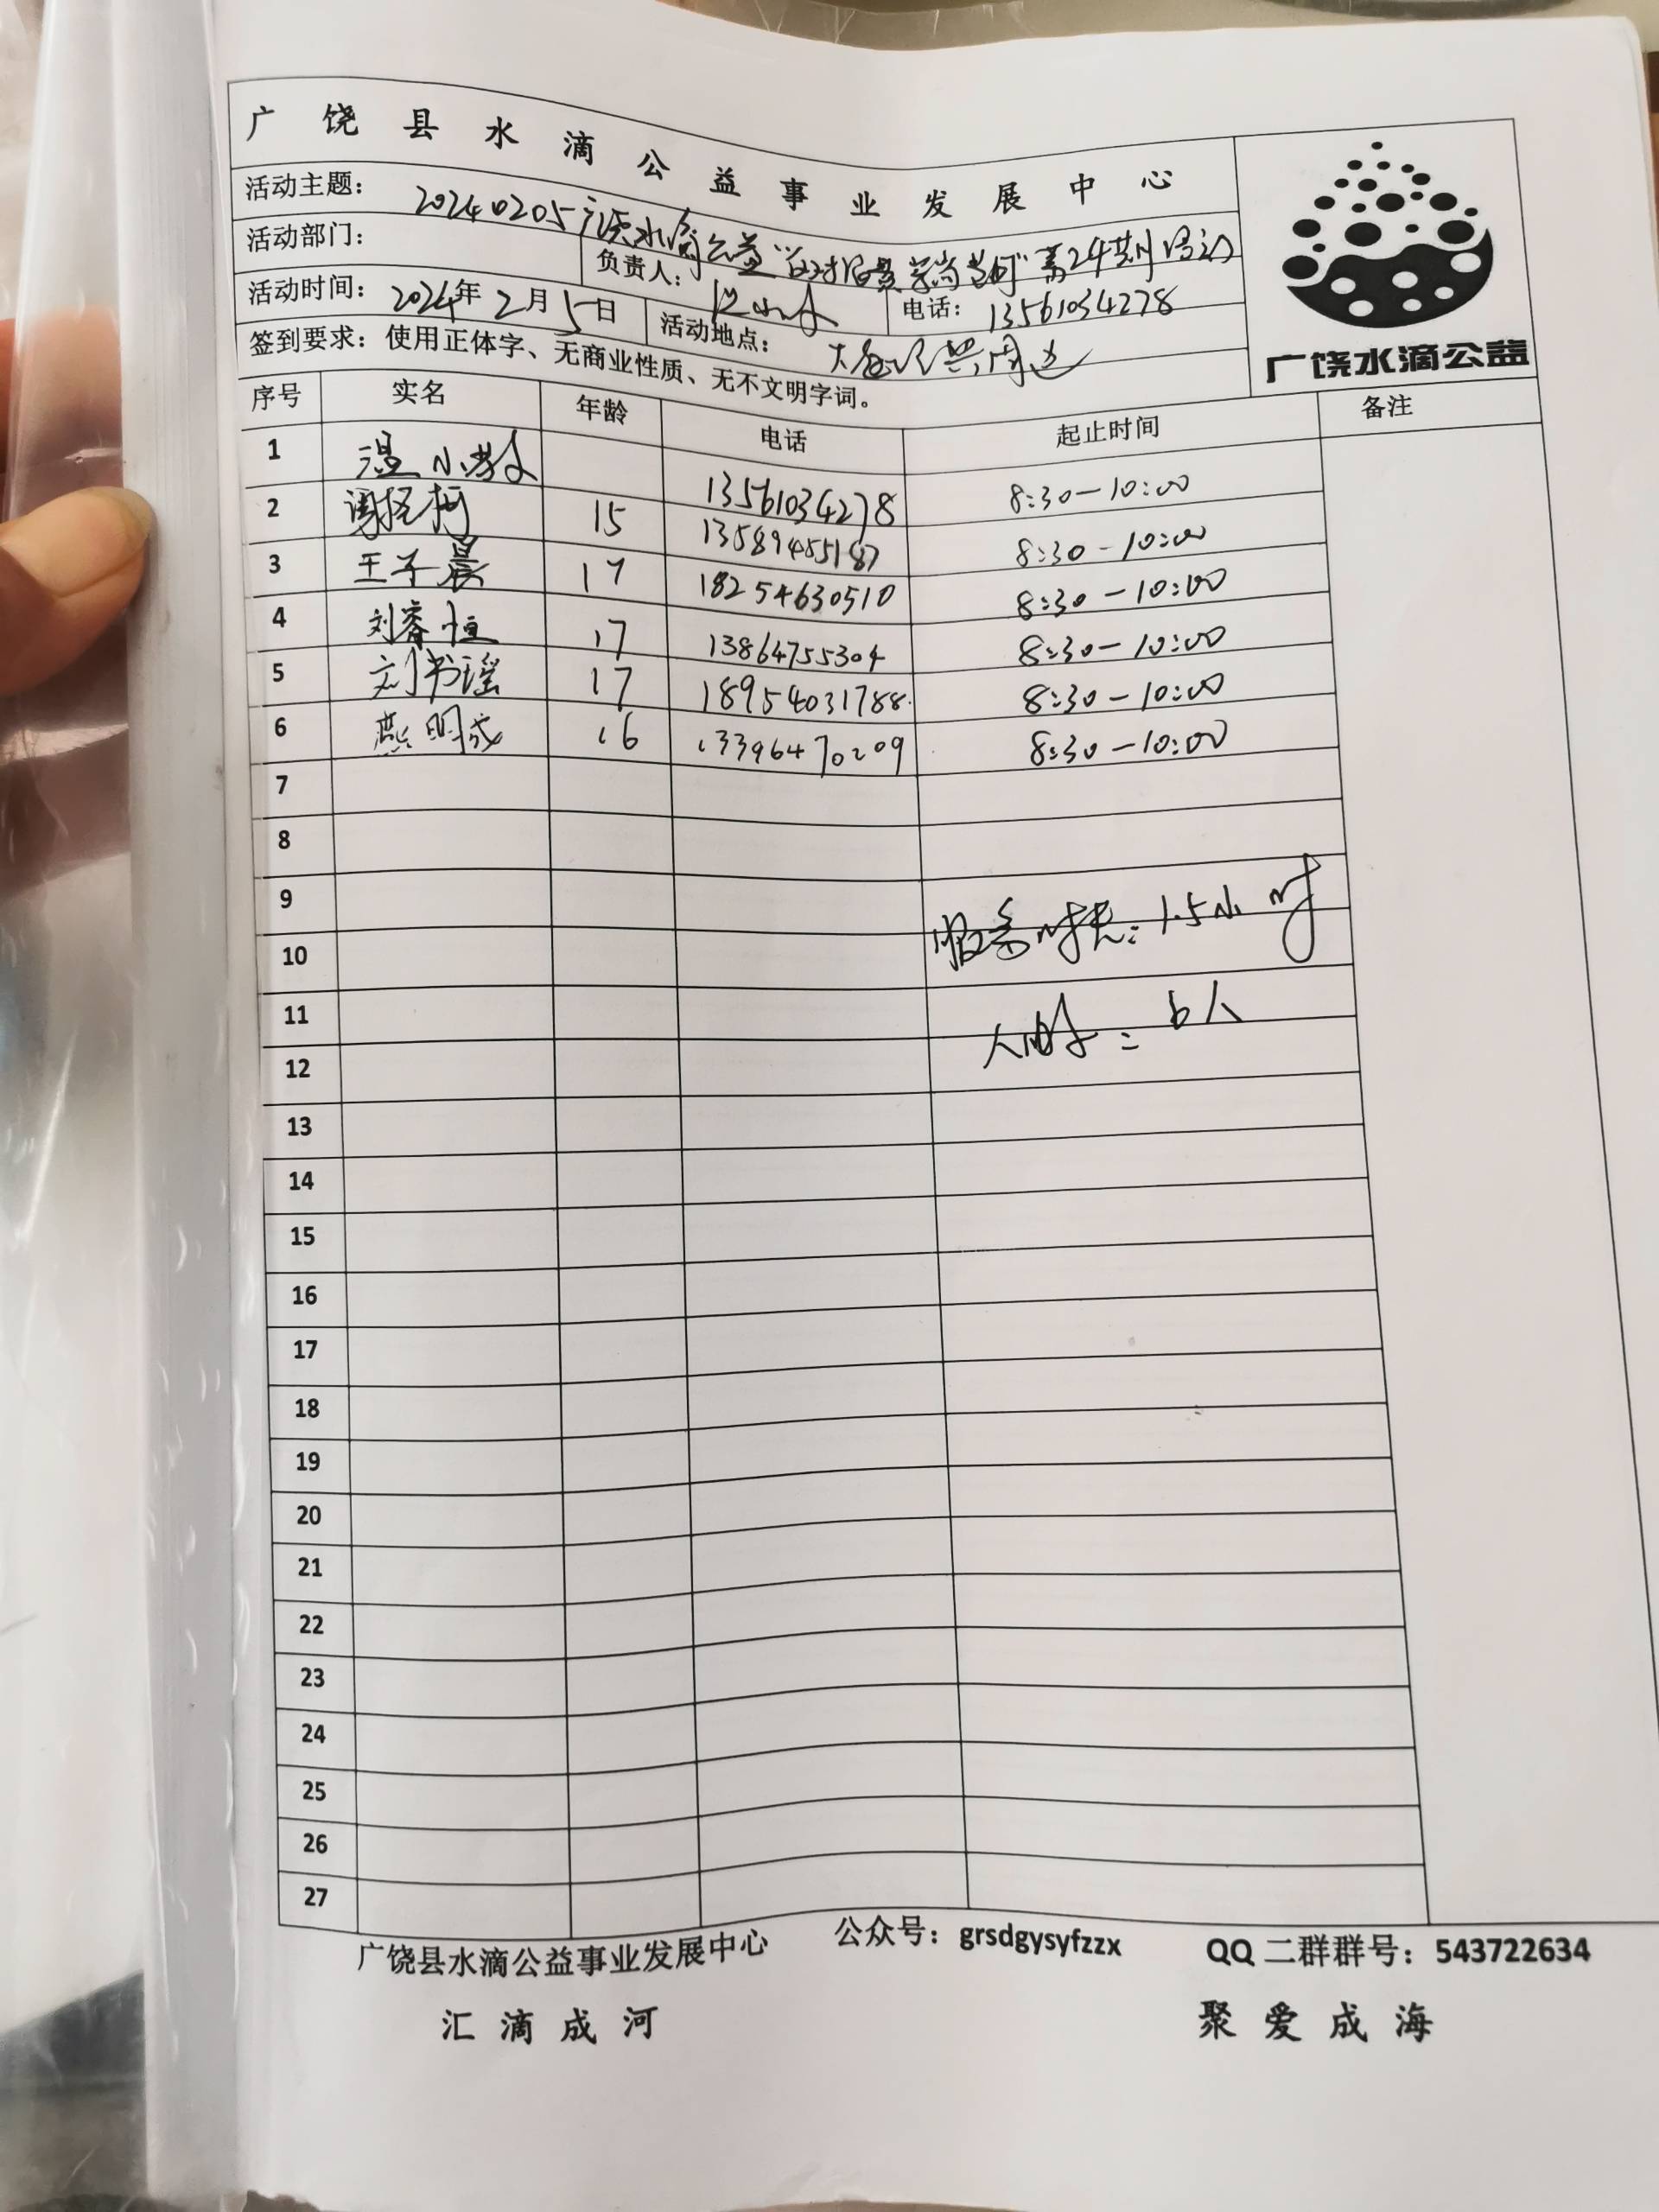 广饶县水滴公益事业发展中心
活动主题：20240205广饶水滴公益 第24期活动
活动部门：
负责人： 电话：13561034278
活动时间：2024年2月5日 活动地点： 周边
签到要求：使用正体字、无商业性质、无不文明字词。
广饶水滴公益
序号 实名 年龄 电话 起止时间 备注
1 温小 13561034278 8:30-10:00
2 15 13589455187 8:30-10:00
3 王子晨 17 18254630510 8:30-10:00
4 刘睿恒 17 13864755304 8:30-10:00
5 刘书瑶 17 18954031788 8:30-10:00
6 燕明成 16 13396470209 8:30-10:00
7
8
9
服务时长：1.5小时
10
11
人数：6人
12
13
14
15
16
17
18
19
20
21
22
23
24
25
26
27
广饶县水滴公益事业发展中心 公众号：grsdgysyfzzx QQ 二群群号：543722634
汇滴成河 聚爱成海